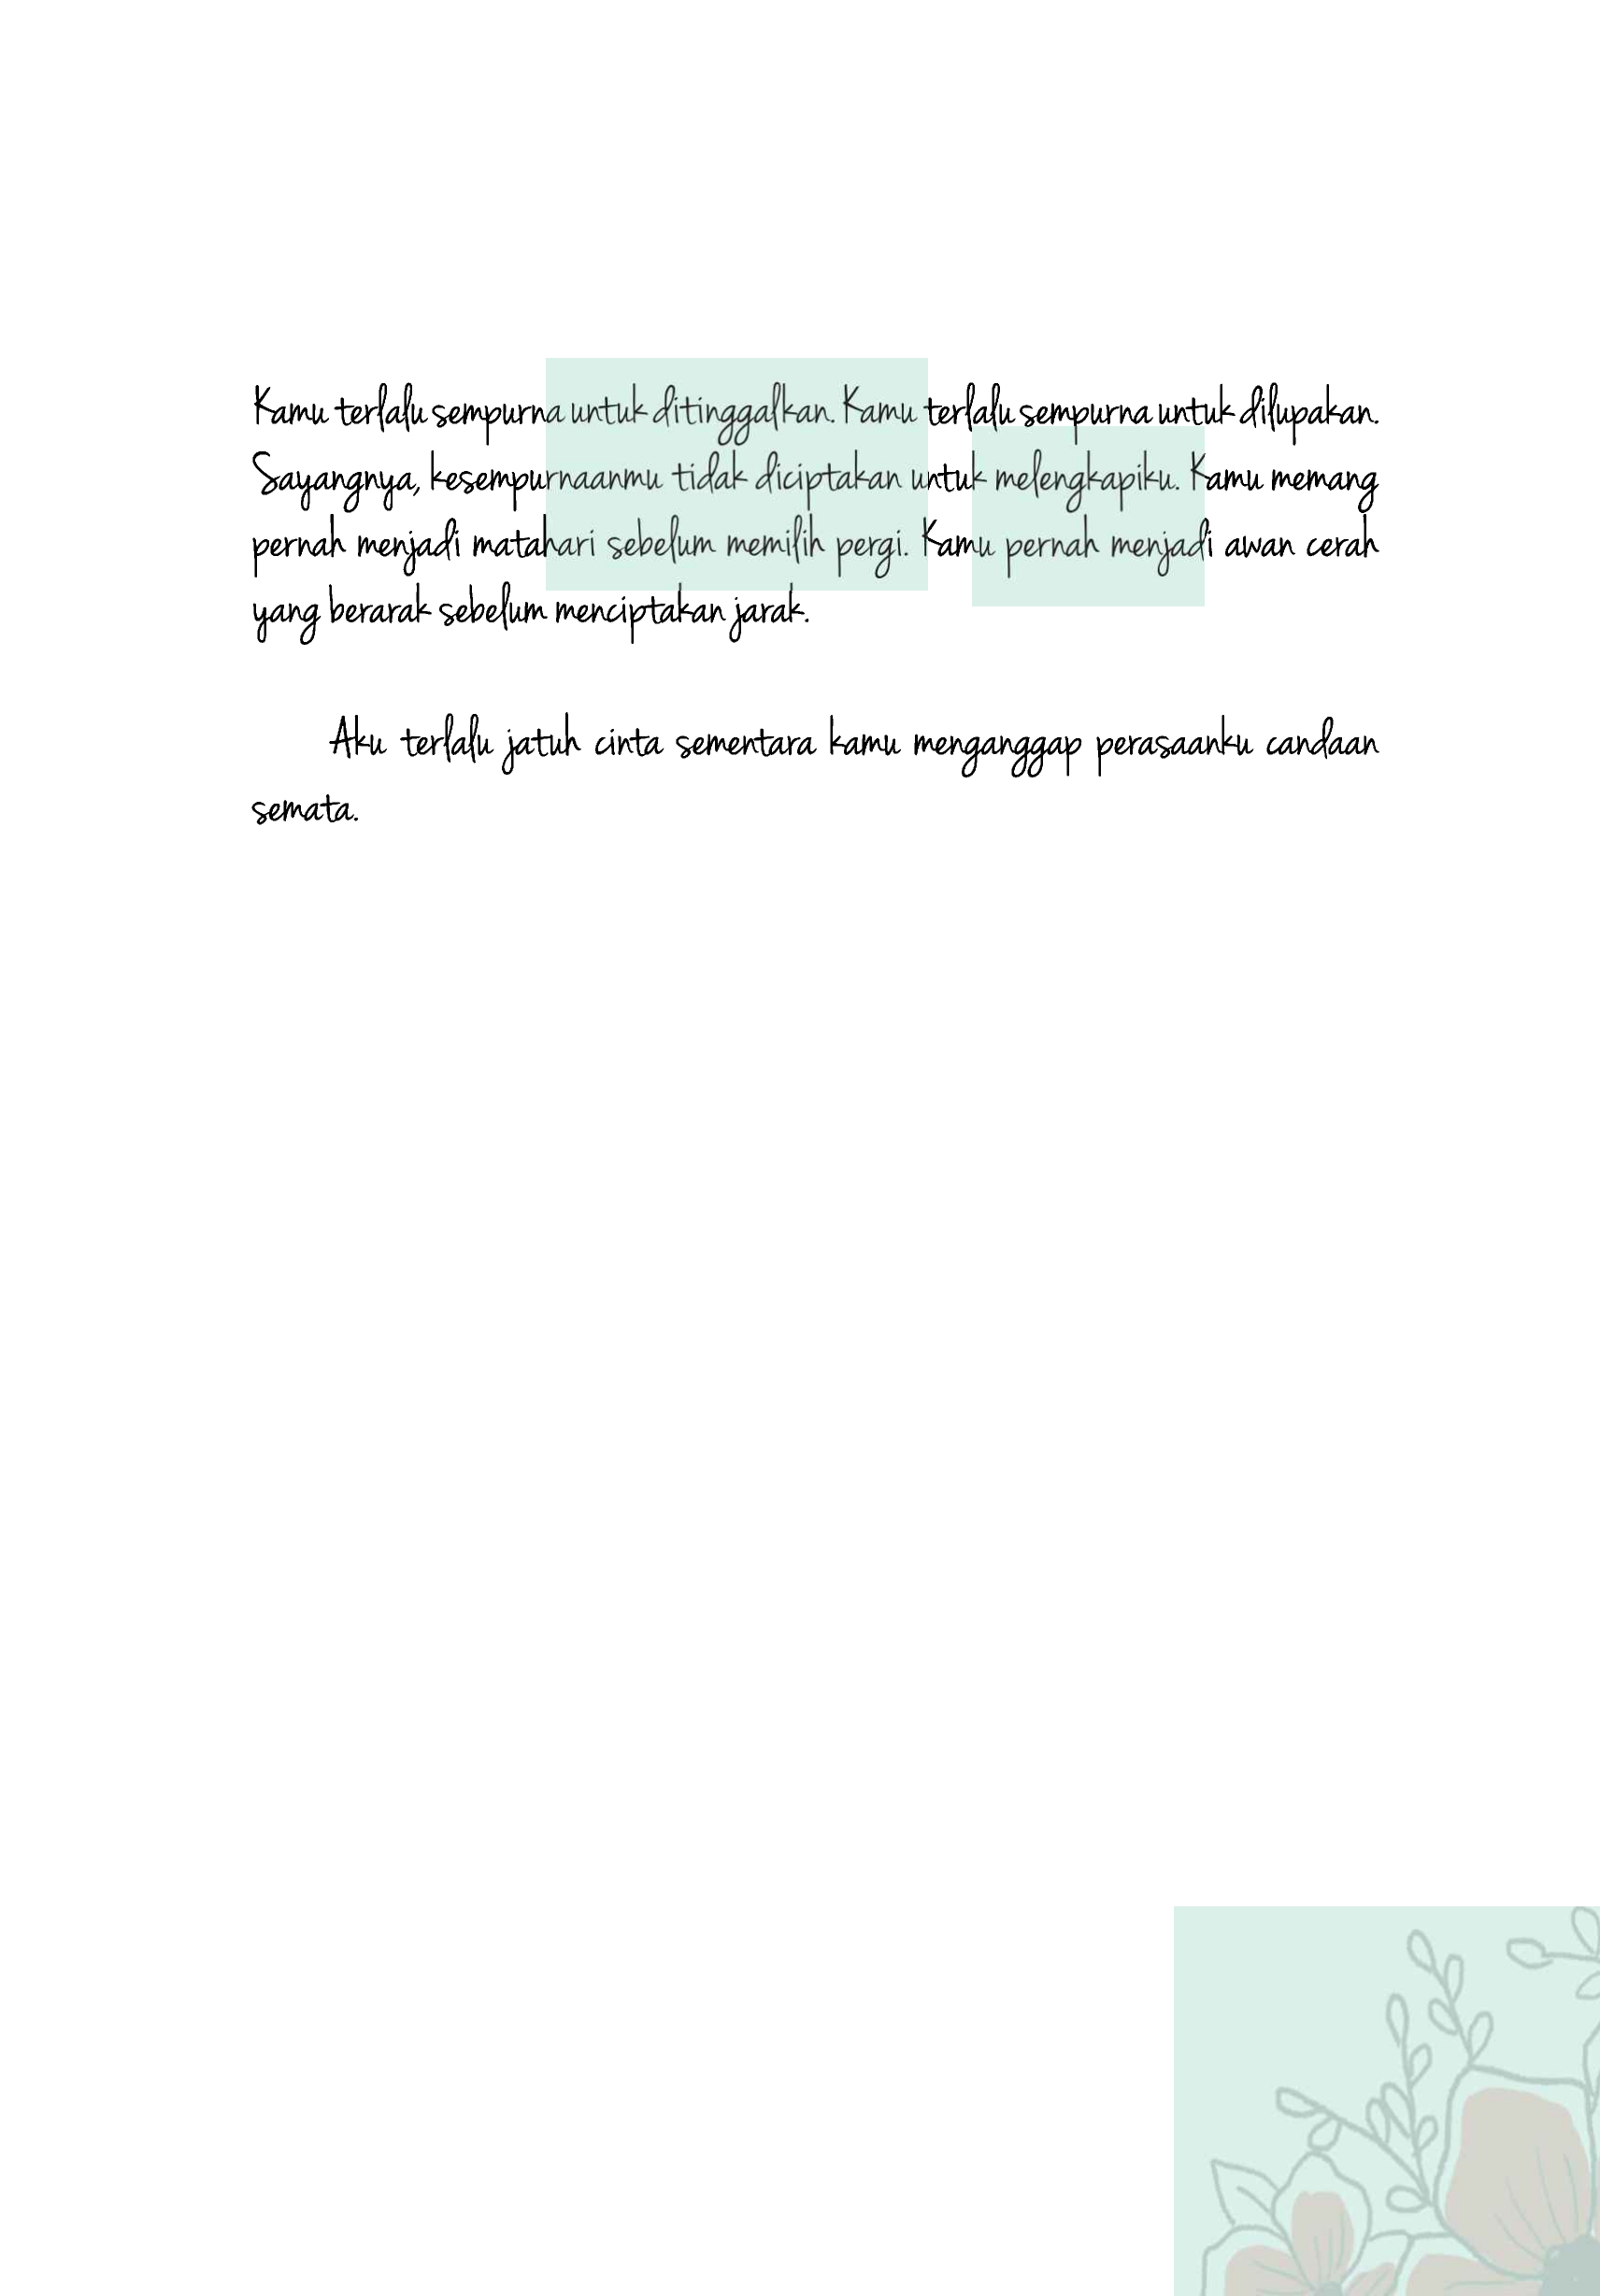 Kamu terlalu sempurna untuk ditinggalkan. Kamu terlalu sempurna untuk dilupakan.
Sayangnya, kesempurnaanmu tidak diciptakan untuk melengkapiku. Kamu memang
pernah menjadi matahari sebelum memilih pergi. Kamu pernah menjadi awan cerah
yang berarak sebelum menciptakan jarak.
Aku terlalu jatuh cinta sementara kamu menganggap perasaanku candaan
semata.